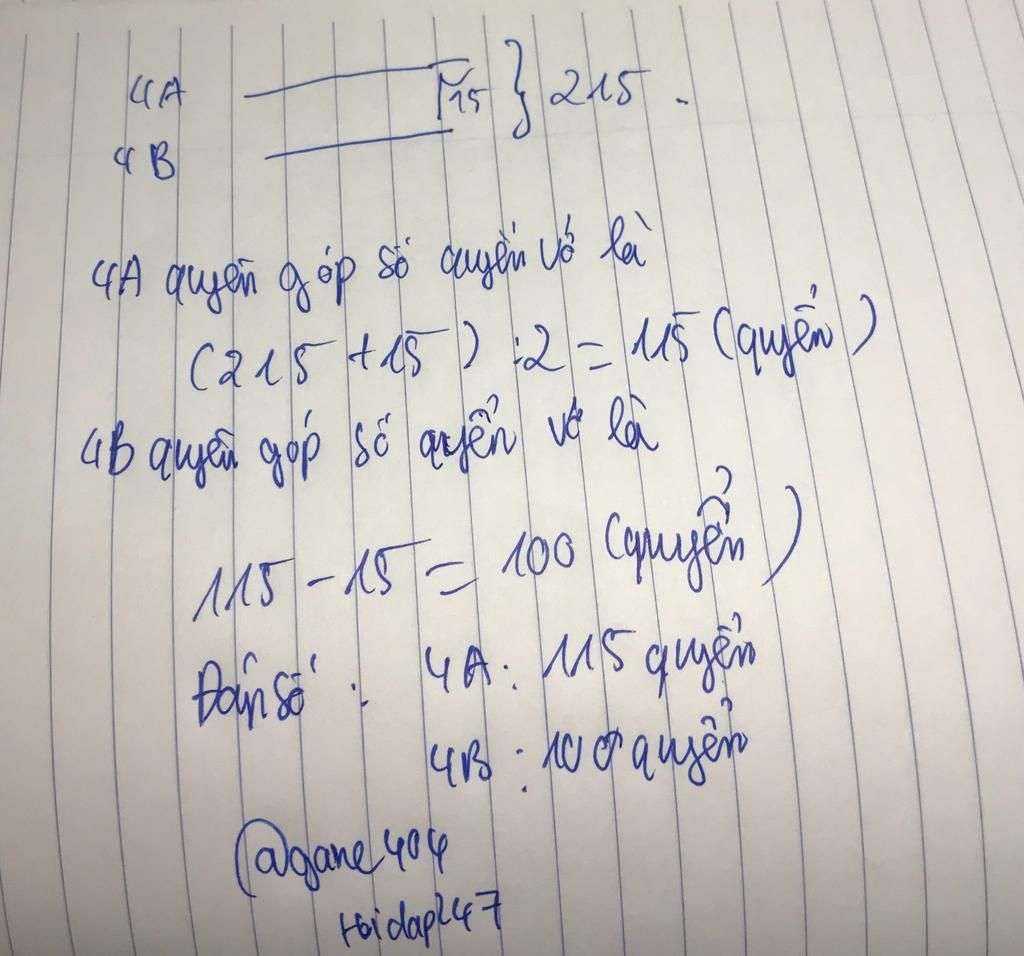 4A 15 } 215 .
4B
4A quyên góp số quyển vở là
(215 + 15) : 2 = 115 (quyển)
4B quyên góp số quyển vở là
115 - 15 = 100 (quyển)
Đáp số : 4A : 115 quyển
4B : 100 quyển
@gane404
Hoidap247